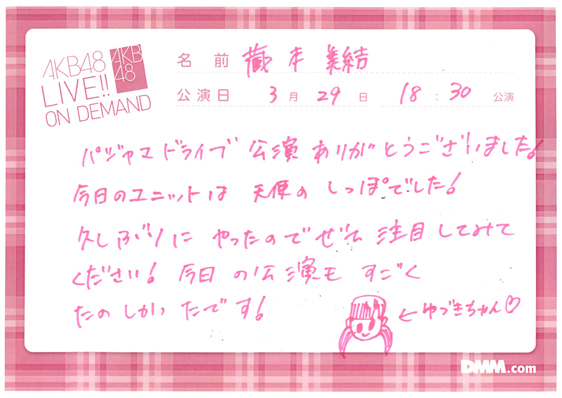 AKB48
LIVE!!
ON DEMAND
AKB
48
名前 蔵本美結
公演日 3月29日 18:30 公演
パジャマドライブ公演ありがとうございました!
今日のユニットは天使のしっぽでした!
久しぶりにやったのでぜひ注目してみて
ください! 今日の公演もすごく
たのしかったです!
←ゆづきちゃん♡
DMM.com